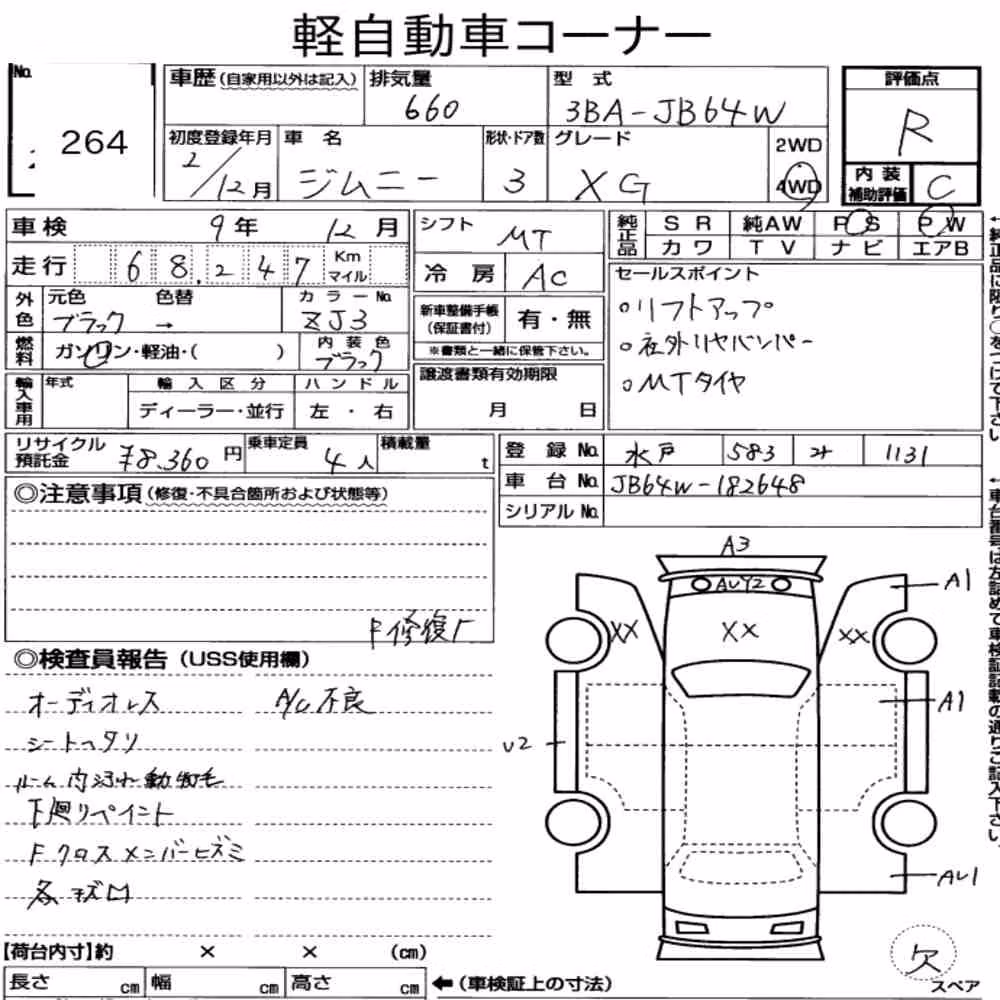 軽自動車コーナー
No. 264
車歴（自家用以外は記入） 排気量 660 型式 3BA-JB64W 評価点 R
初度登録年月 2/12月 車名 ジムニー 形状・ドア数 3 グレード XG 2WD 4WD
内装補助評価 C
車検 9年 12月 シフト MT 純正品 SR 純AW PS PW
カワ TV ナビ エアB
走行 68,247 Km マイル 冷房 AC
セールスポイント
外色 元色 ブラック 色替 → カラーNo. ZJ3
新車整備手帳（保証書付） 有・無
※書類と一緒に保管下さい。
○リフトアップ
○社外リヤバンパー
○MTタイヤ
燃料 ガソリン・軽油・（ ） 内装色 ブラック
輸入車用 年式 輸入区分 ハンドル
ディーラー・並行 左・右
譲渡書類有効期限
月 日
リサイクル預託金 ¥8,360円 乗車定員 4人 積載量 t
登録No. 水戸 583 1131
車台No. JB64W-182648
シリアルNo.
◎注意事項（修復・不具合箇所および状態等）
F修復有
◎検査員報告（USS使用欄）
オーディオレス A/C不良
シートヘタリ
ルーム内汚れ動物毛
下廻リペイント
Fクロスメンバーヒズミ
各キズ凹
A3
AUY2
XX XX XX
A1
A1
U2
AU1
欠
スペア
【荷台内寸】約 × × （cm）
長さ cm 幅 cm 高さ cm ←（車検証上の寸法）
←純正品に限り○をつけて下さい。
←車台番号は左詰めで車検証記載の通りご記入下さい。